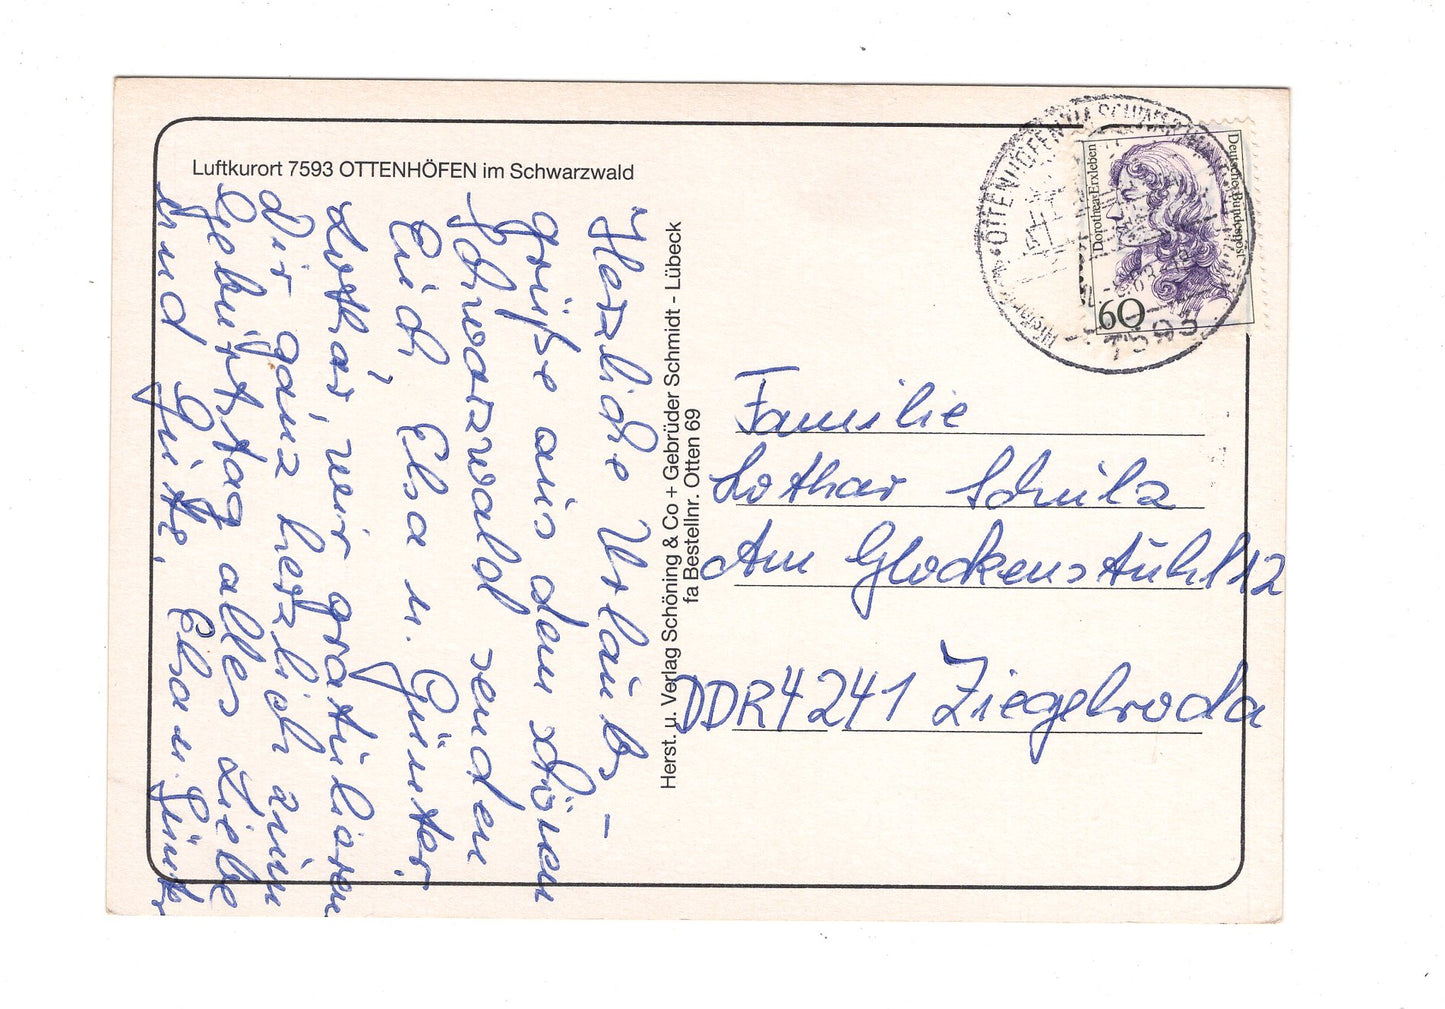 Luftkurort 7593 OTTENHÖFEN im Schwarzwald
Herzliche Urlaubs-
grüße aus dem schönen
Schwarzwald senden
Euch, Elsa u. Günter.
Lothar, wir gratulieren
Dir ganz herzlich zum
Geburtstag alles Liebe
und Gute. Elsa u. Günter
Herst. u. Verlag Schöning & Co + Gebrüder Schmidt - Lübeck
fa Bestellnr. Otten 69
OTTENHÖFEN
7593
Dorothea Erxleben
Deutsche Bundespost
60
Familie
Lothar Schulz
Am Glockenstuhl 12
DDR 4241 Ziegelroda